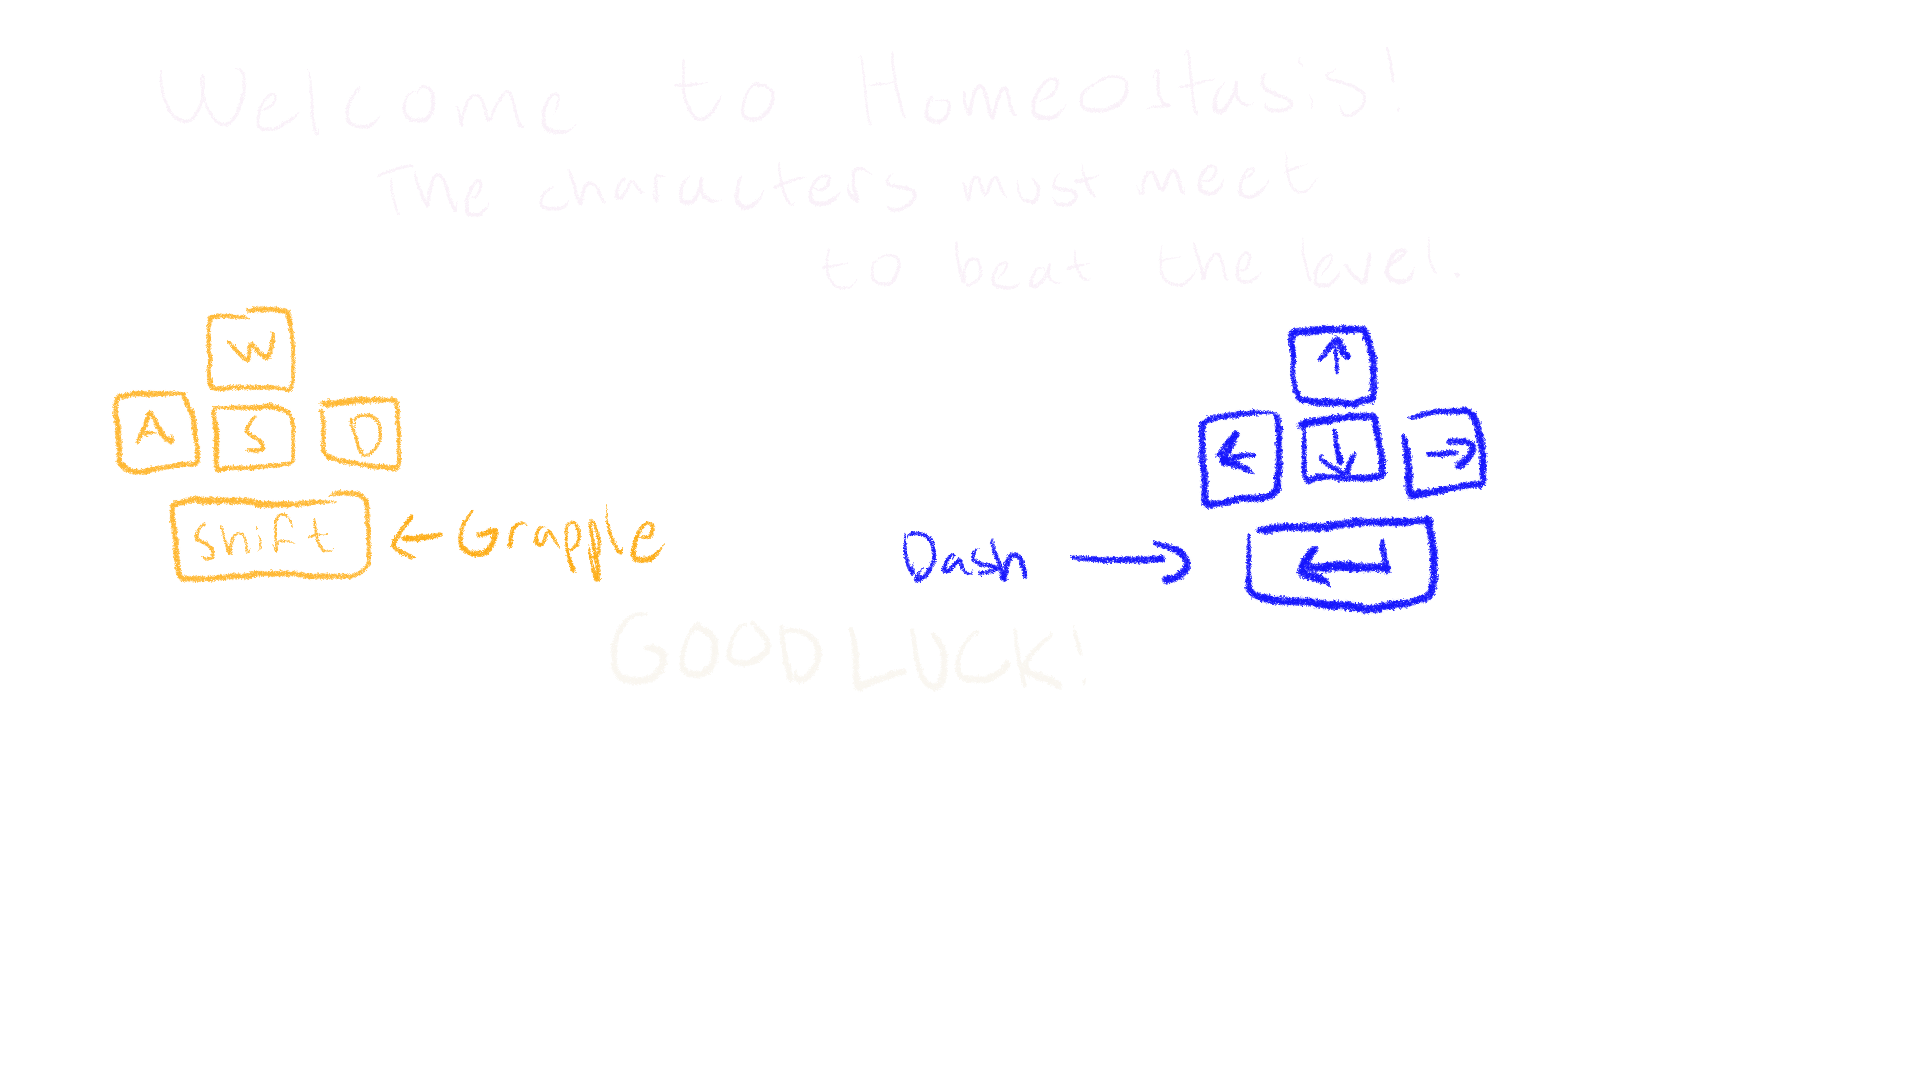 Welcome to Homeostasis!
The characters must meet
to beat the level.
W
A S D
shift ← Grapple
↑
← ↓ →
Dash → ←
GOOD LUCK!